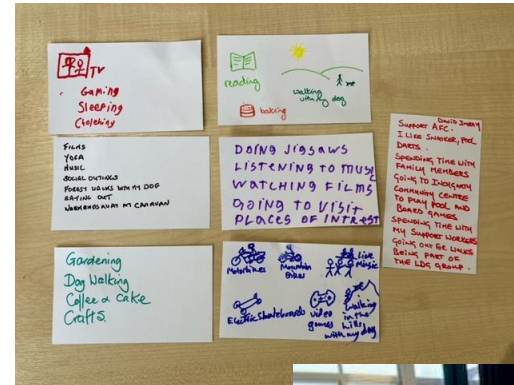 TV
Gaming
Sleeping
reading
walking
with my dog
baking
FILMS
YOGA
MUSIC
SOCIAL OUTINGS
FOREST WALKS WITH MY DOG
EATING OUT
WEEKENDS AWAY IN CARAVAN
DOING JIGSAWS
LISTENING TO MUSIC
WATCHING FILMS
GOING TO VISIT
PLACES OF INTREST
Gardening
Dog Walking
Coffee & Cake
Crafts.
Motorbikes
Mountain
Bikes
Live
Music
Electric Skateboards
video
games
walking
in the
hills
with my dog
DAVID
SUPPORT AFC.
I LIKE SNOOKER, POOL
DARTS.
SPENDING TIME WITH
FAMILY MEMBERS
GOING TO
COMMUNITY CENTRE
TO PLAY POOL AND
BOARD GAMES
SPENDING TIME WITH
MY SUPPORT WORKERS
GOING OUT FOR WALKS
BEING PART OF
THE LDG GROUP.